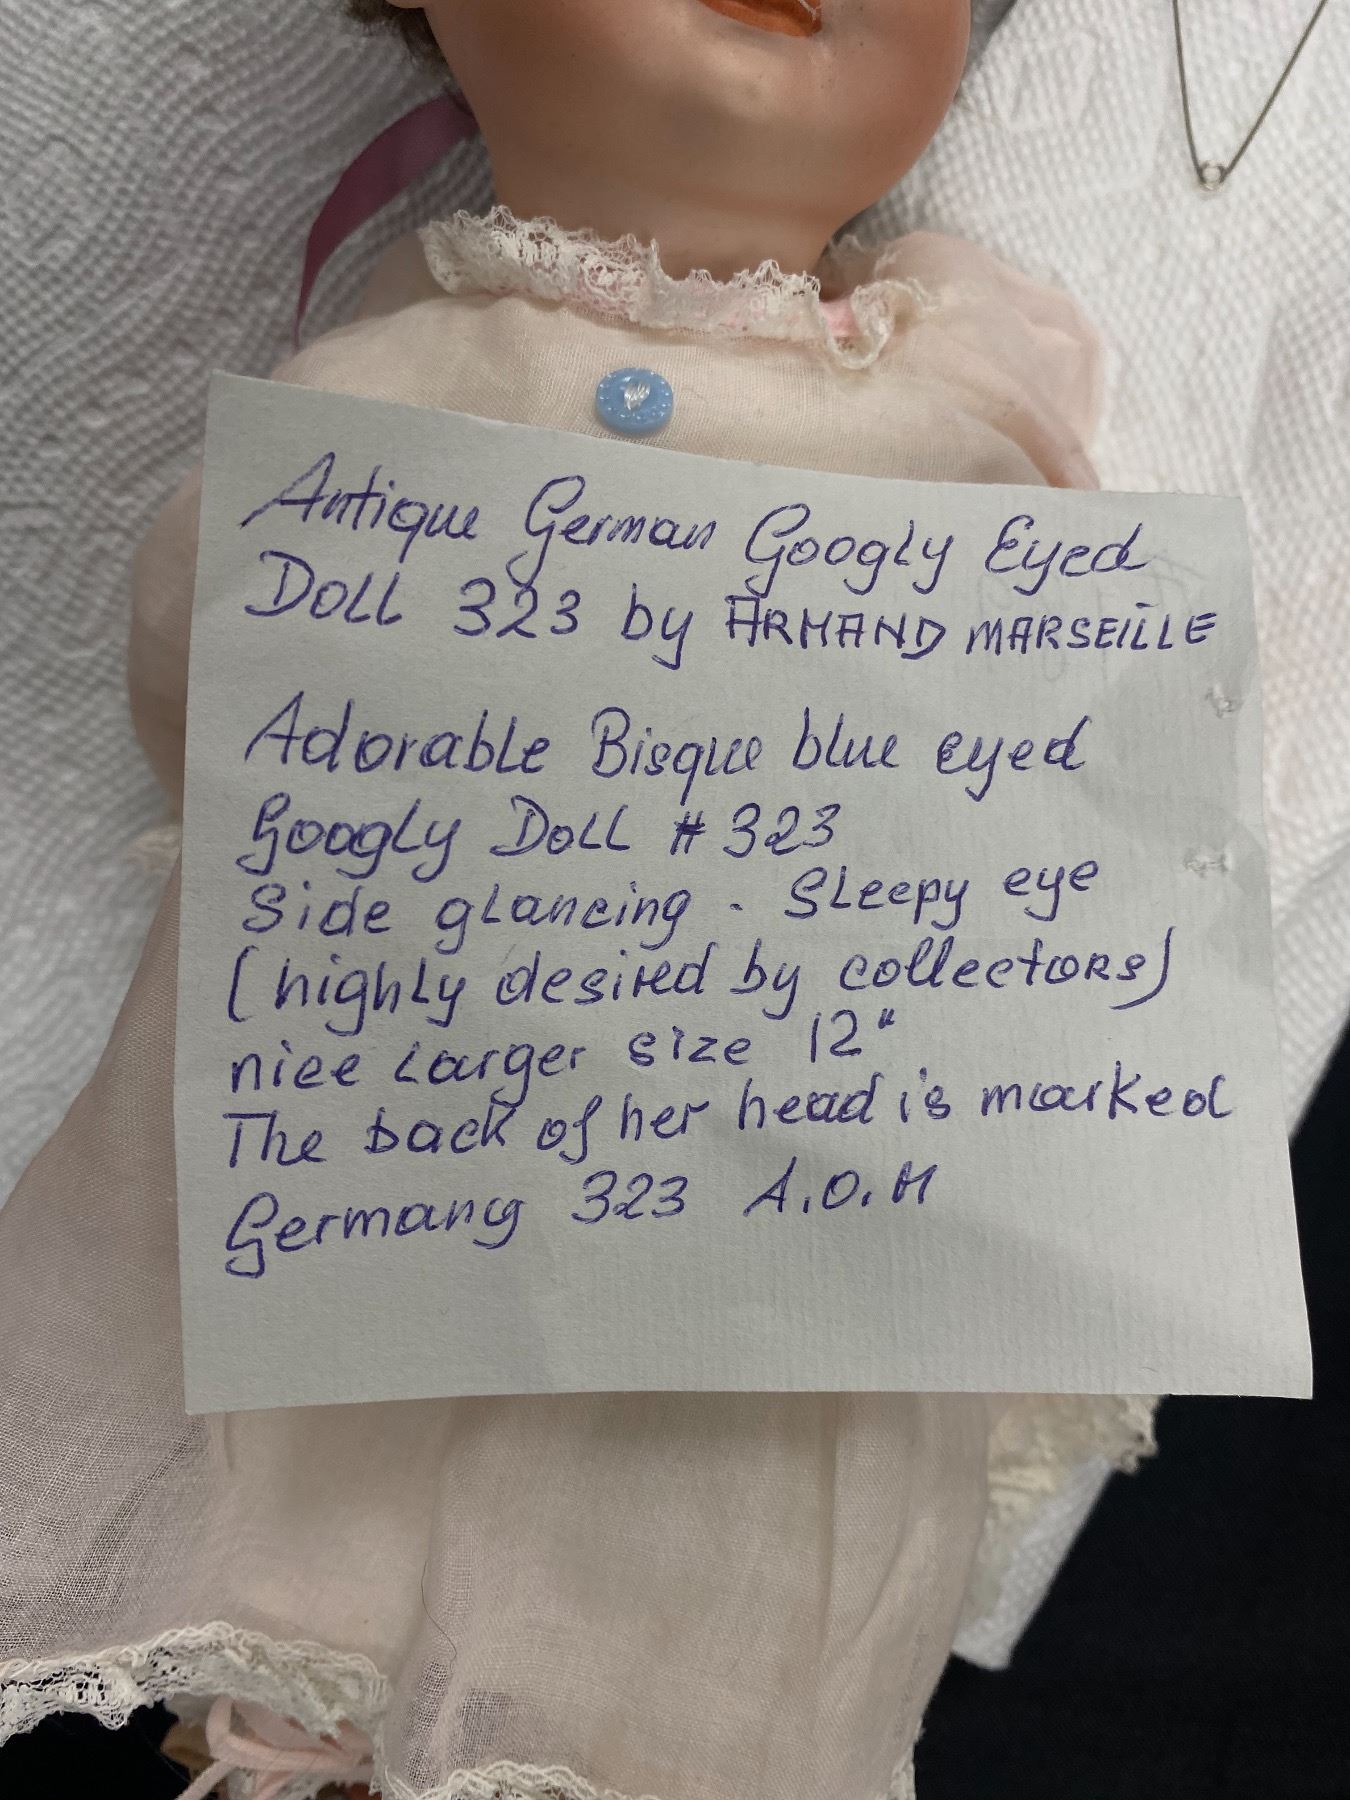 Antique German Googly Eyed
Doll 323 by ARMAND MARSEILLE
Adorable Bisque blue eyed
Googly Doll # 323
Side glancing - Sleepy eye
(highly desired by collectors)
nice larger size 12"
The back of her head is marked
Germany 323 A.O.M